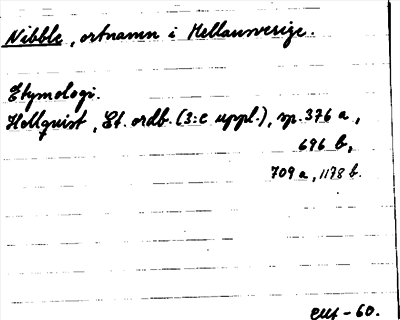 Nibble, ortnamn i Mellansverige.
Etymologi.
Hellquist, Et. ordb. (3:e uppl.), sp. 376 a,
696 b,
709 a, 1178 b.
-60.